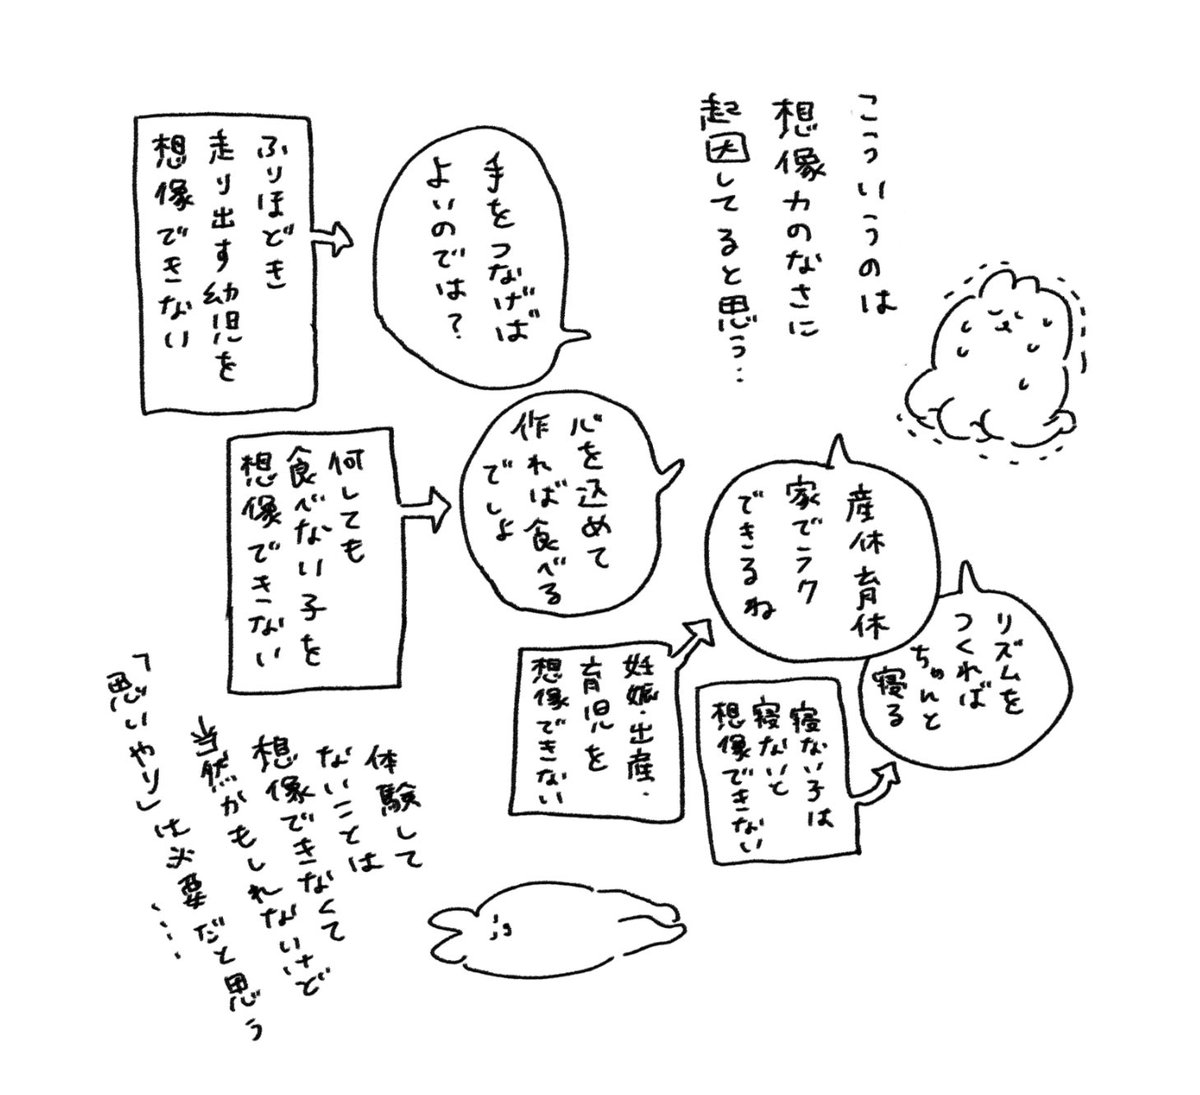 こういうのは
想像力のなさに
起因してると思う…
手をつなげば
よいのでは？
ふりほどき
走り出す幼児を
想像できない
心を込めて
作れば食べる
でしょ
何しても
食べない子を
想像できない
産休育休
家でラク
できるね
妊娠・出産・
育児を
想像できない
リズムを
つくれば
ちゃんと
寝る
寝ない子は
寝ないと
想像できない
体験して
ないことは
想像できなくて
当然かもしれないけど
「思いやり」は必要だと思う
…